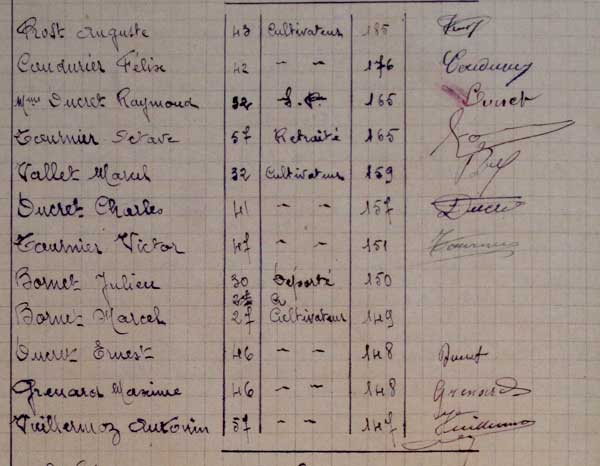 Prost Auguste 43 Cultivateur 185 Prost
Coudurier Félix 42 " " 176 Coudurier
Mme Ducret Raymond 32 S. P. 165 Ducret
Tournier Octave 57 Retraité 165
Vallet Marcel 32 Cultivateur 159
Ducret Charles 41 " " 157 Ducret
Tournier Victor 47 " " 151 Tournier
Bornet Julien 30 Déporté 150
Bornet Marcel 27 Cultivateur 149
Ducret Ernest 46 " " 148 Ducret
Grenard Maxime 46 " " 148 Grenard
Vuillermoz Antonin 57 " " 147 Vuillermoz